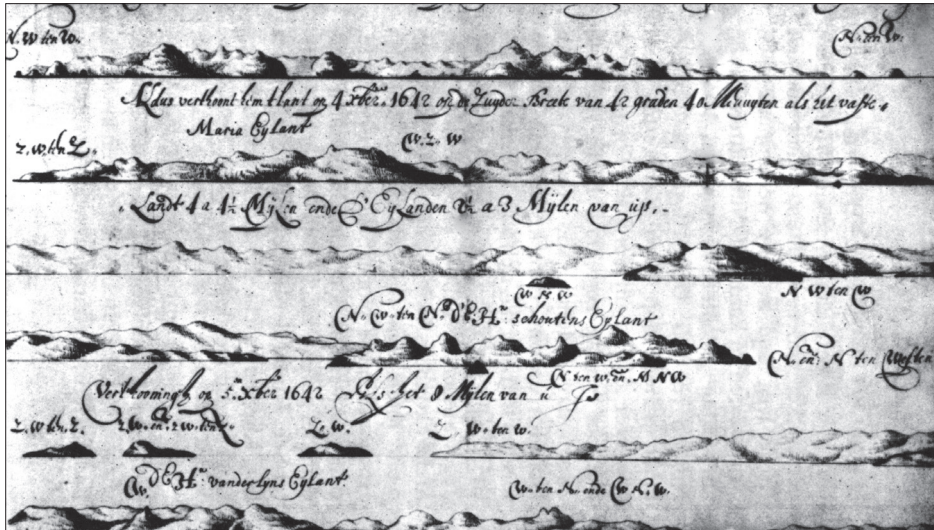 N. W ten W. N. ten W.
Aldus verthoont hem t lant op 4 xber 1642 op de Zuyder Breete van 42 graden 40 Minuyten als het vaste
Maria Eylant
Z. W ten Z. W. Z. W
Landt 4 a 4½ Mylen ende Eylanden a 3 Mylen van u is
W N W N W ten W
N. W ten N. D'E Hr schoutens Eylant
N. en N ten Westen
N ten W. en N N W
Verthooning op 5 xber 1642 Als het 8 Mylen van u Is
Z. W ten Z. Z. W. en Z W ten Z. Z. W. Z. W ten W.
D'E Hr vanderlyns Eylant
W. W ten N. ende W. N. W.